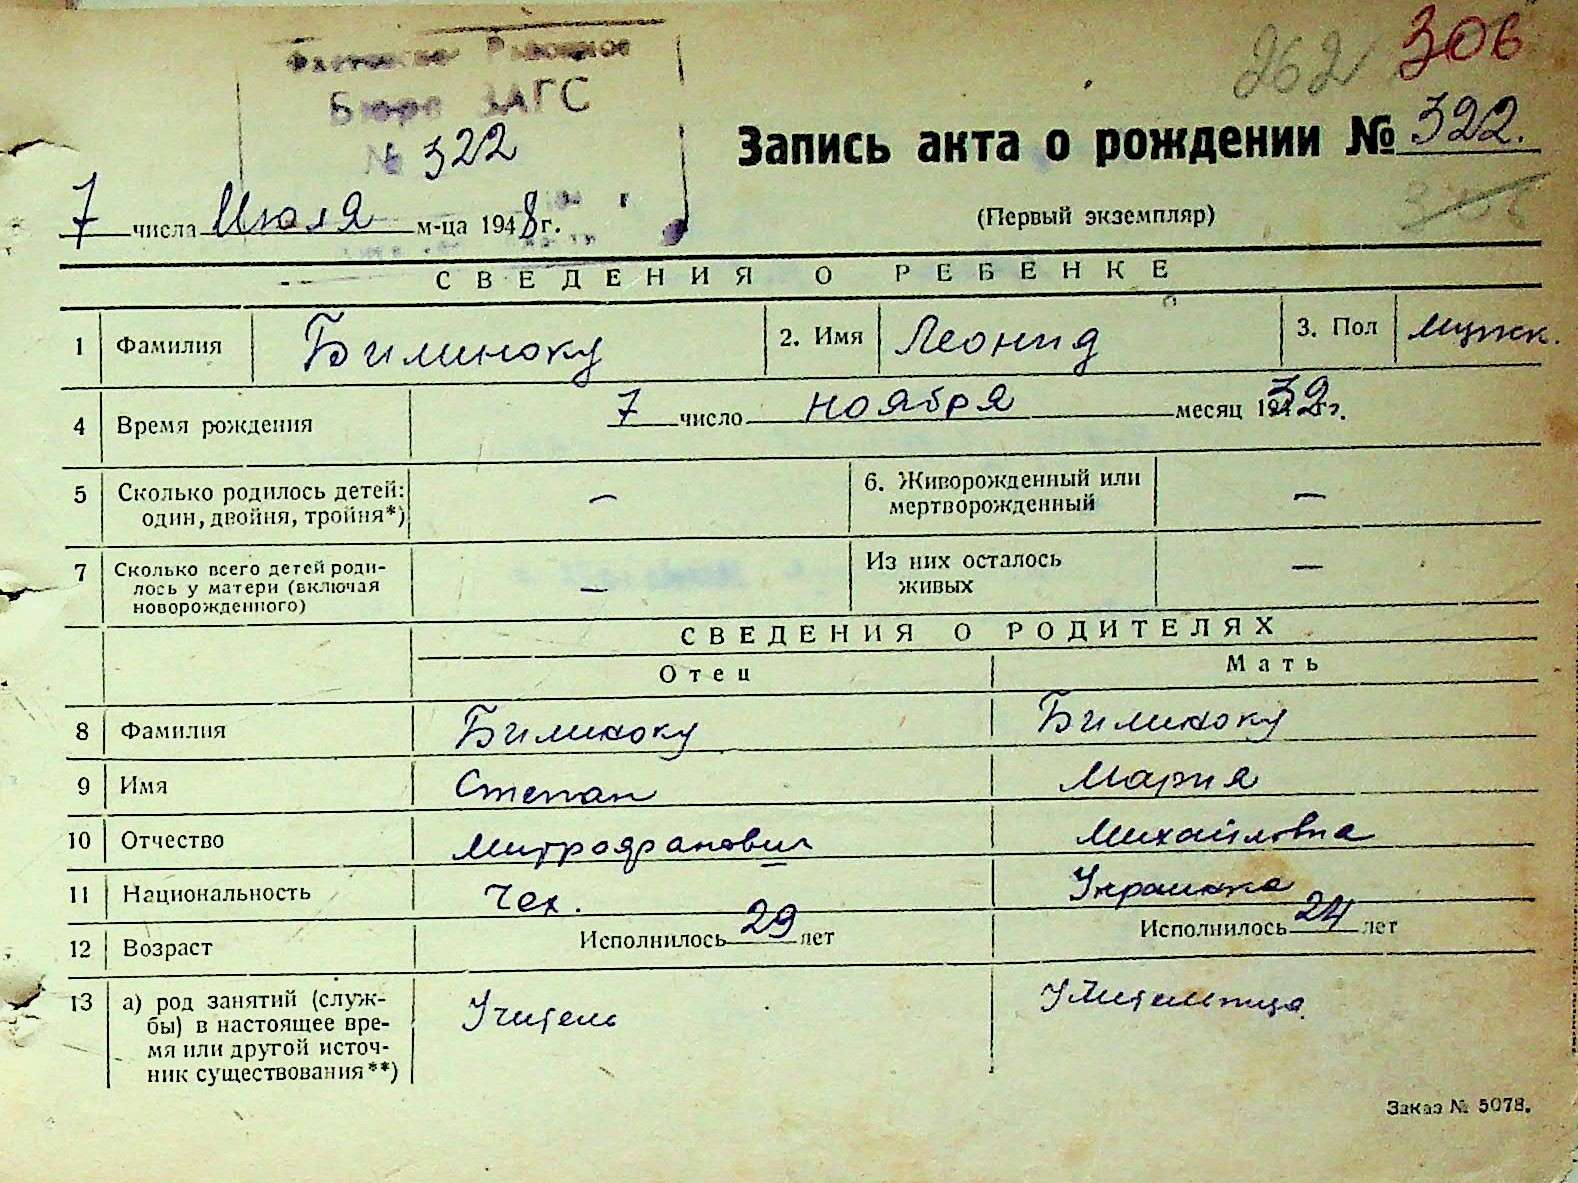 Бюро ЗАГС
№ 322
262 306
Запись акта о рождении № 322.
306
7 числа Июля м-ца 1948 г.
(Первый экземпляр)
СВЕДЕНИЯ О РЕБЕНКЕ
1 Фамилия Билиноку 2. Имя Леонид 3. Пол мужк.
4 Время рождения 7 число ноября месяц 1939 г.
5 Сколько родилось детей: — 6. Живорожденный или —
один, двойня, тройня*) мертворожденный
7 Сколько всего детей роди- — Из них осталось —
лось у матери (включая живых
новорожденного)
СВЕДЕНИЯ О РОДИТЕЛЯХ
Отец Мать
8 Фамилия Билиноку Билиноку
9 Имя Степан Мария
10 Отчество Митрофанович Михайловна
11 Национальность Чех. Украинка
12 Возраст Исполнилось 29 лет Исполнилось 24 лет
13 а) род занятий (служ- Учитель Учительница
бы) в настоящее вре-
мя или другой источ-
ник существования**)
Заказ № 5078.